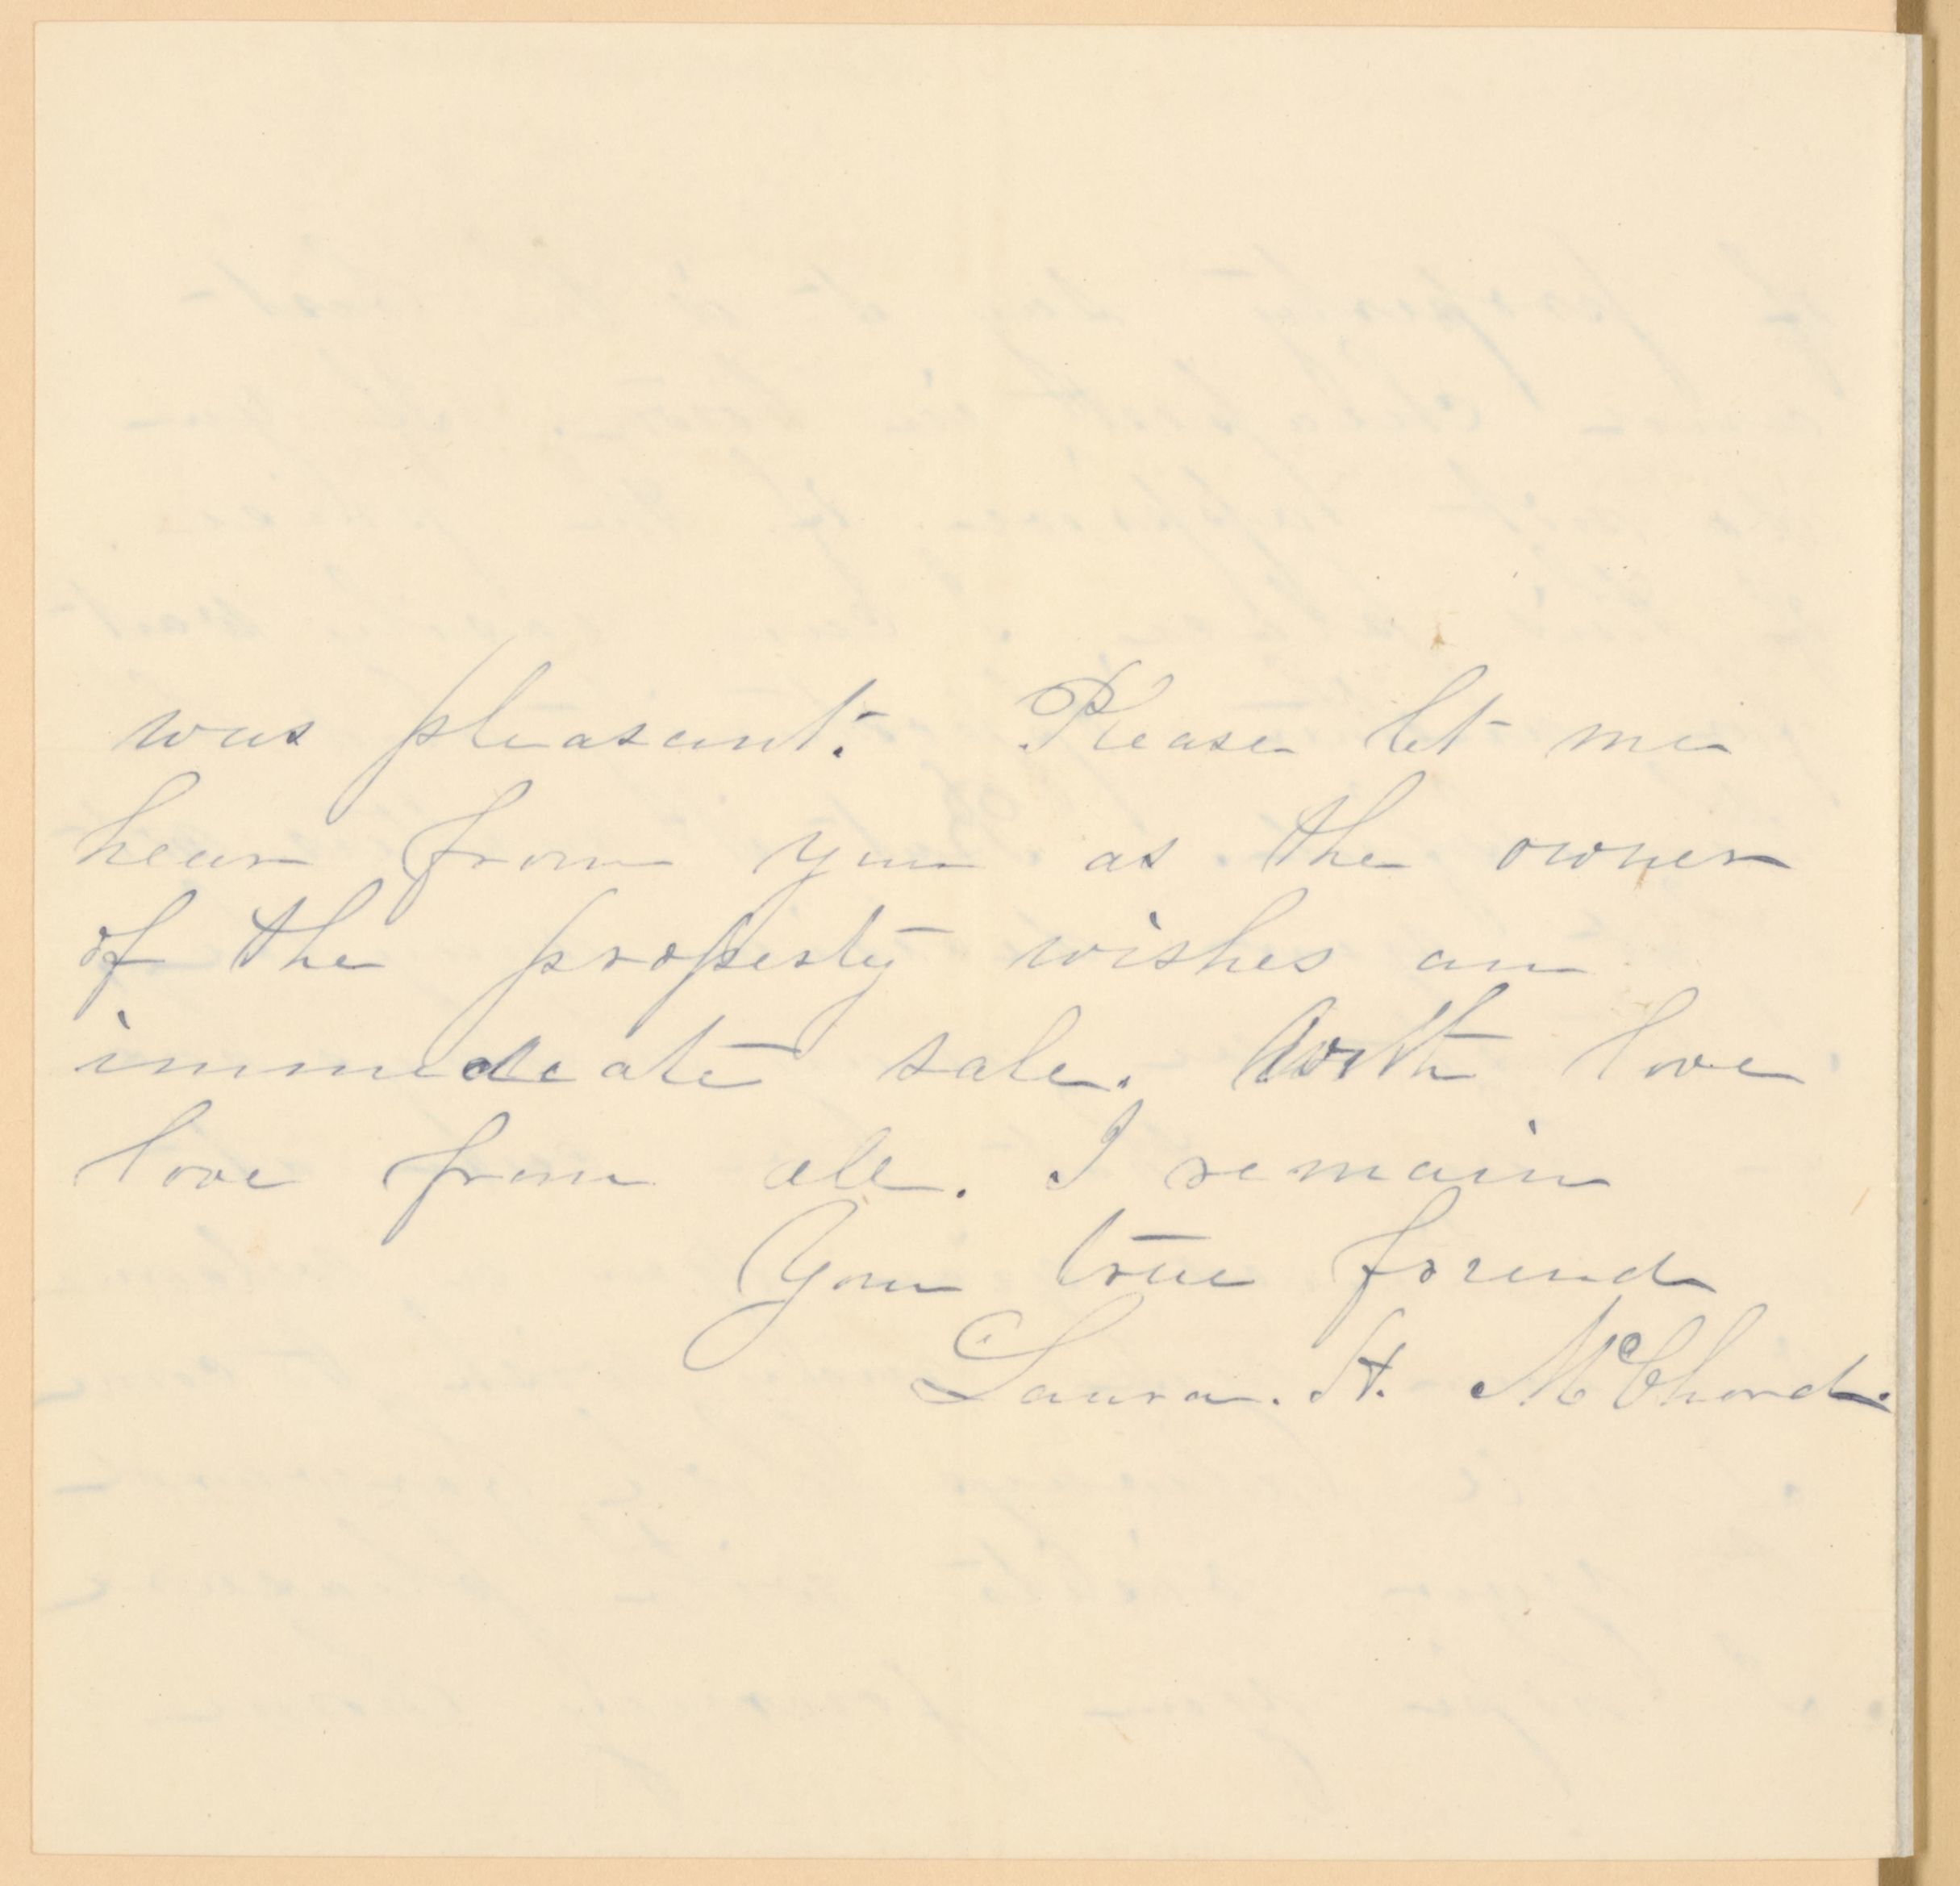 was pleasant. Please let me
hear from you as the owner
of the property wishes an
immediate sale. With love
love from all. I remain
Your true friend
Laura. H. McChord.